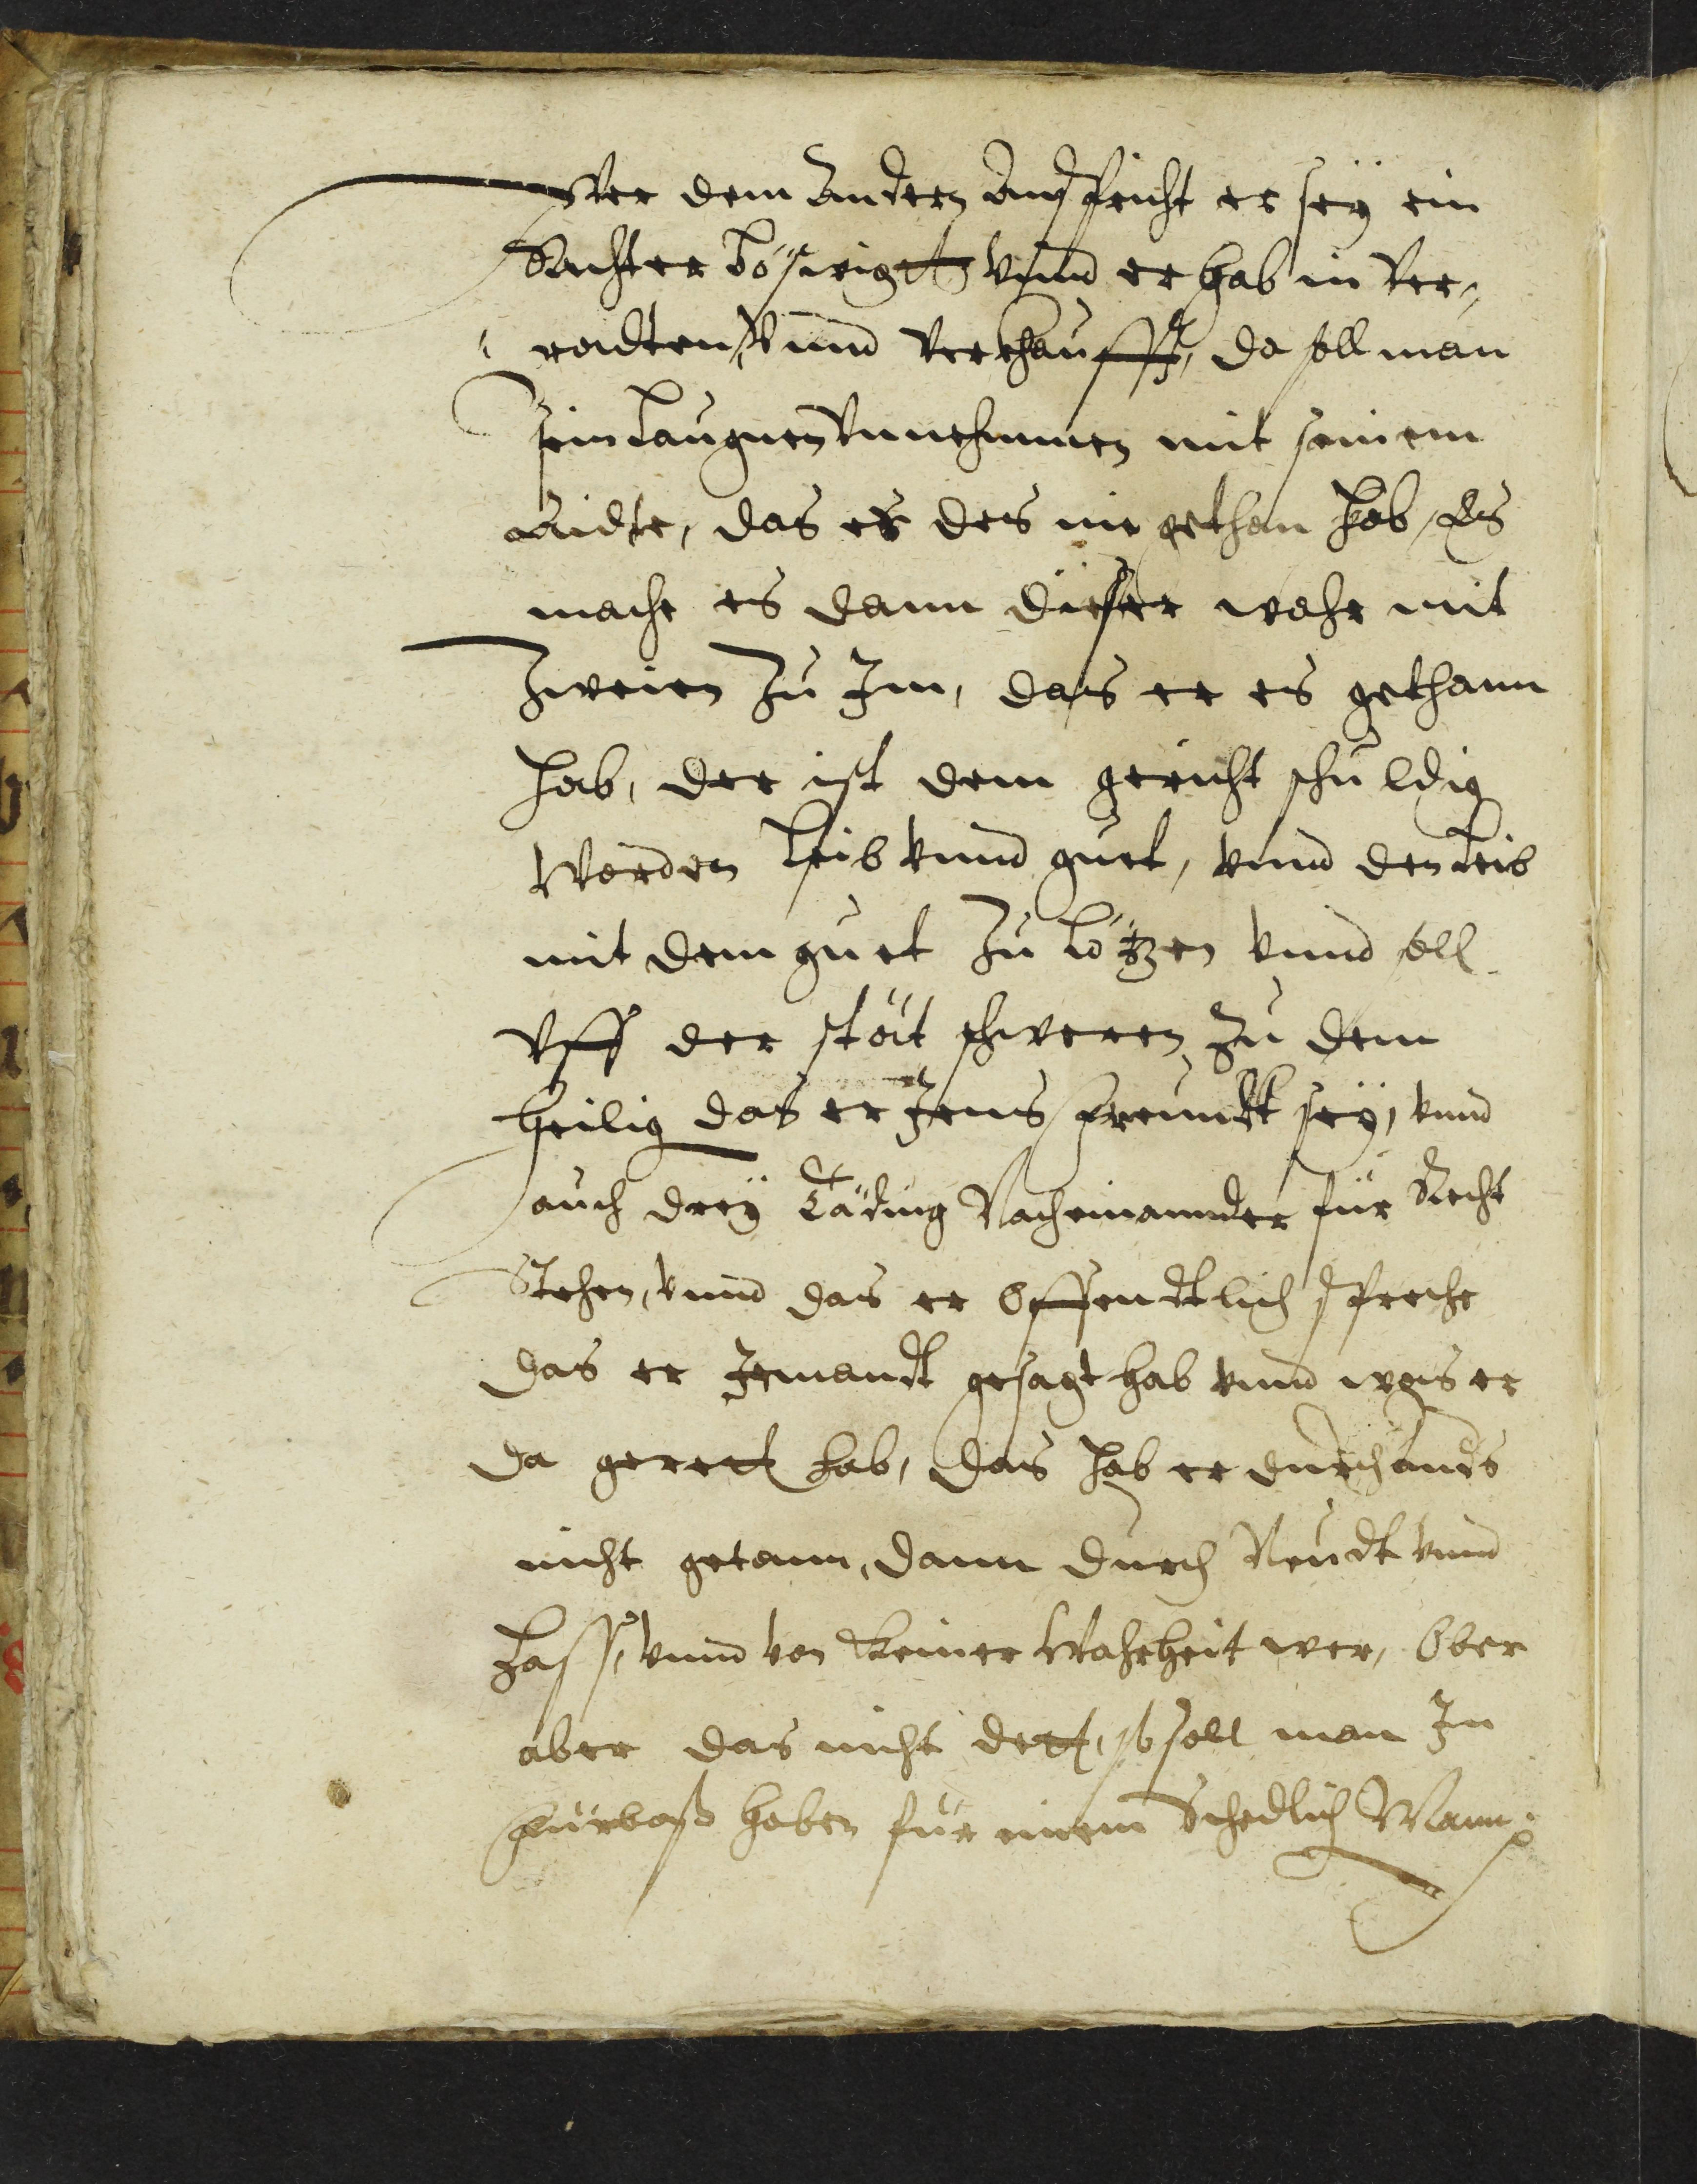 Wer dem Andern Anspricht er seÿ ein
Rechter bößwigt vnnd er hab in ver¬
redten, vnnd verkhaufft, da soll man
sein laugnen Annehmmen mit seinem
Aidte, das er des nie gethan hab, Es
mache es dann dieser wahr mit
Zweien Zu Im, das er es gethann
hab, der ist dem gericht schuldig
worden leib vnnd guet, vnnd den leib
mit dem guet Zu lößen vnnd soll
vff der stöt schweren Zu dem
heilig das er Jens freundt seÿ, vnnd
auch dreÿ Täding Nacheinannder für Recht
Stehen, vnnd das er Offendtlich spreche
das er Jemandt gesagt hab vnnd was er
da gerett hab, das hab er durch anders
nicht getann, dann durch Neidt vnnd
Hass, vnnd von keiner Wahrheit wer, Ober
aber das nicht dett, so soll man In
fürbaß haben für einem Schedlich Mann.